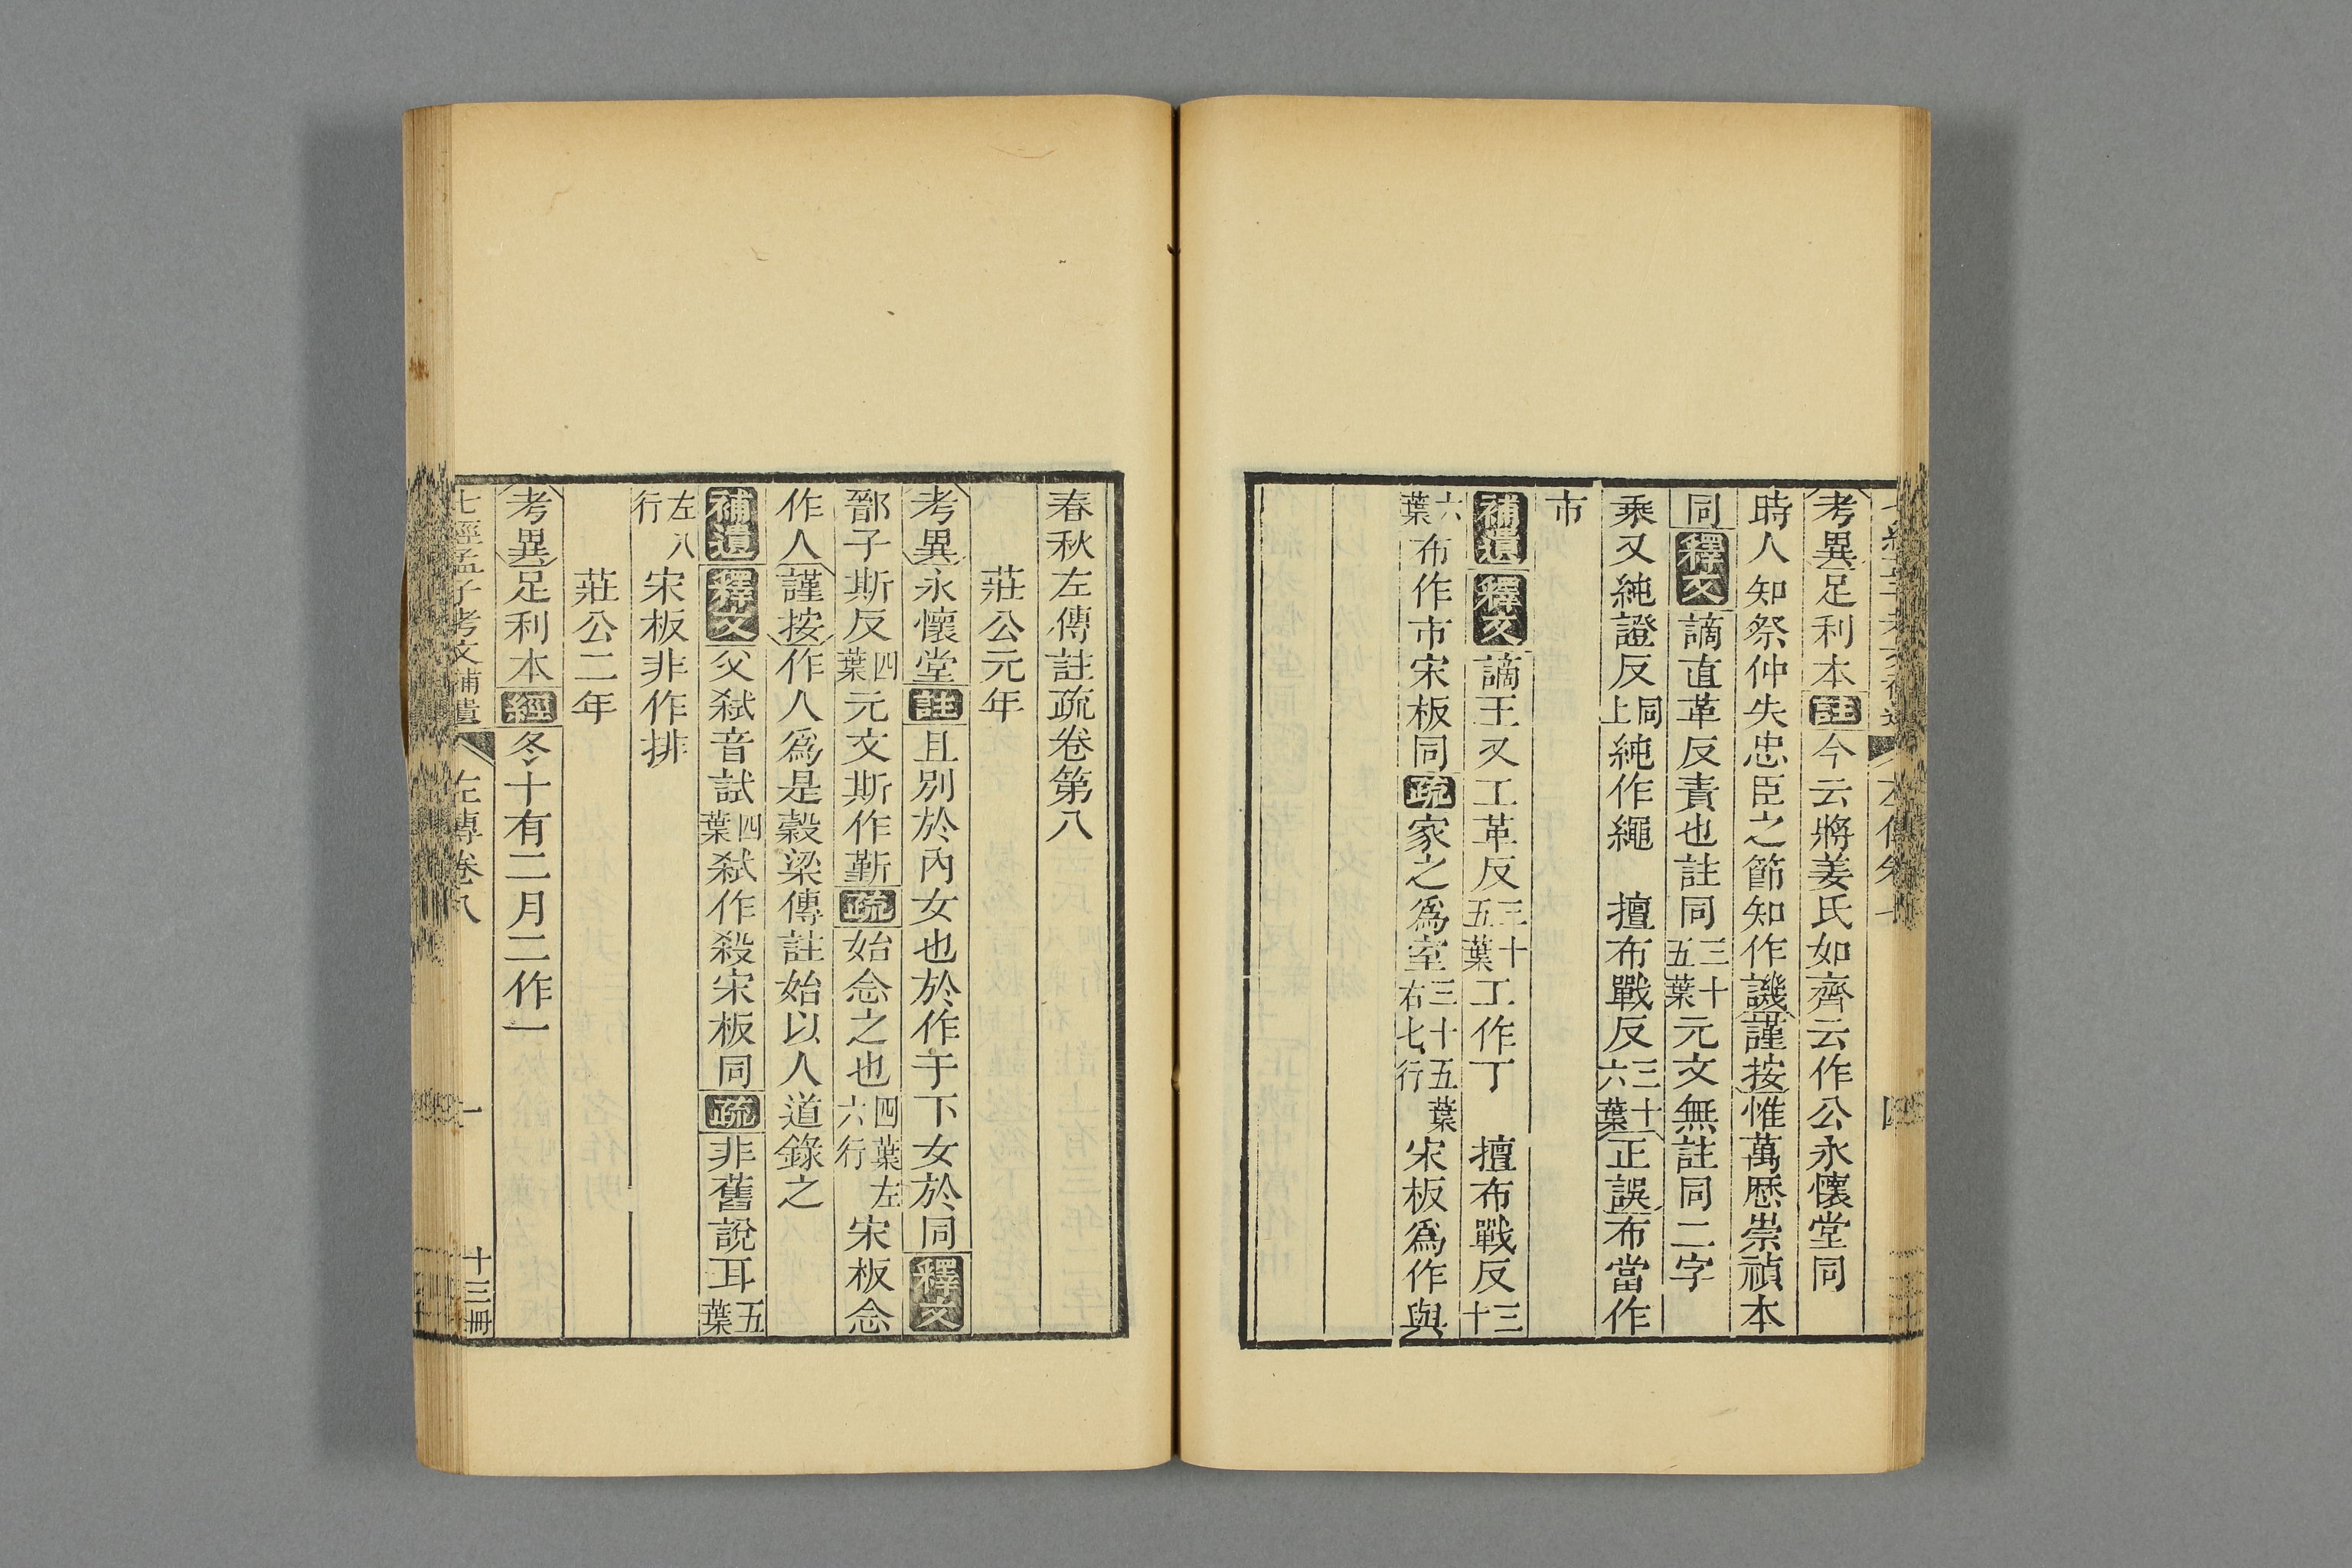 考異足利本註今云將姜氏如齊云作公永懷堂同
時人知祭仲失忠臣之節知作譏謹按惟萬歷崇禎本
同釋文謫直革反責也註同三十五葉元文無註同二字
乘又純證反同上純作繩　擅布戰反三十六葉正誤布當作
市
補遺釋文謫王又工革反三十五葉工作丁　擅布戰反三十
六葉布作市宋板同疏家之爲室三十五葉右七行宋板爲作與
春秋左傳註疏卷第八
莊公元年
考異永懷堂註且別於內女也於作于下女於同釋文
鄑子斯反四葉元文斯作斳疏始念之也四葉左六行宋板念
作人謹按作人爲是穀梁傳註始以人道錄之
補遺釋文父弒音試四葉弒作殺宋板同疏非舊說耳五葉
左八行宋板非作排
莊公二年
考異足利本經冬十有二月二作一
七經孟子考文補遺　左傳卷八　一　十三冊